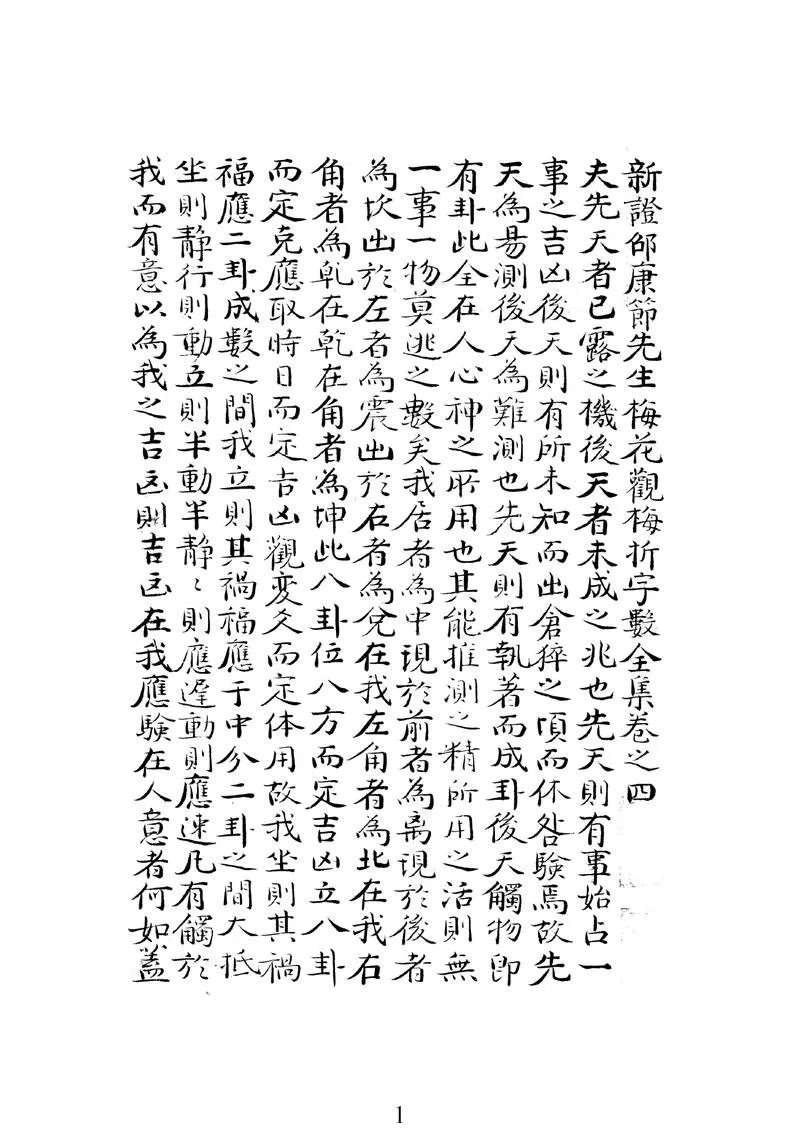 新證邵康節先生梅花觀梅折字數全集卷之四
夫先天者已露之機後天者未成之兆也先天則有事始占一
事之吉凶後天則有所未知而出倉猝之頃而休咎驗焉故先
天為易測後天為難測也先天則有執著而成卦後天觸物即
有卦此全在人心神之所用也其能推測之精所用之活則無
一事一物莫逃之數矣我居者為中現於前者為离現於後者
為坎出於左者為震出於右者為兌在我左角者為北在我右
角者為乹在乾在角者為坤此八卦位八方而定吉凶立八卦
而定克應取時日而定吉凶觀变爻而定体用故我坐則其禍
福應二卦成數之間我立則其禍福應于中分二卦之間大抵
坐則静行則動立則半動半静〻則應遲動則應速凡有觸於
我而有意以為我之吉凶則吉凶在我應驗在人意者何如蓋
1